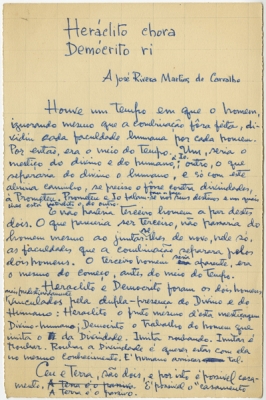 Heráclito chora
Demócrito ri
A José Rivera Martins de Carvalho
Houve um tempo em que o homem,
ignorando mesmo que a combinação fôra feita, di-
vidiu cada faculdade humana por cada homem.
Por então, era o meio do tempo. Um, seria o
mestiço do divino e do humano; outro, o que
separaria do divino o humano, e só com este
abriria caminho, se preciso fôsse contra divindades,
E não havia terceiro homem a par destes
dois. O que parecia ser terceiro, não passaria do
homem mesmo ao de novo, nele só,
as faculdades que a combinação separara pelos
dois homens. O terceiro homem
o mesmo do começo, antes do meio do tempo.
Heráclito e Demócrito foram os dois homens
vinculados pela dupla-presença do Divino e do
Humano: Heráclito o fruto mesmo desta mestiçagem
Divino-humano; Demócrito o Trabalho do homem que
imita o da Divindade. Imita roubando. Imitar é
Roubar. Roubar a Divindade é quanto esta nos dá
no mesmo conhecimento. E humano
Céu e Terra, são dois, e por isto é possível casa-
mento. É possível o casamento
A Terra é o